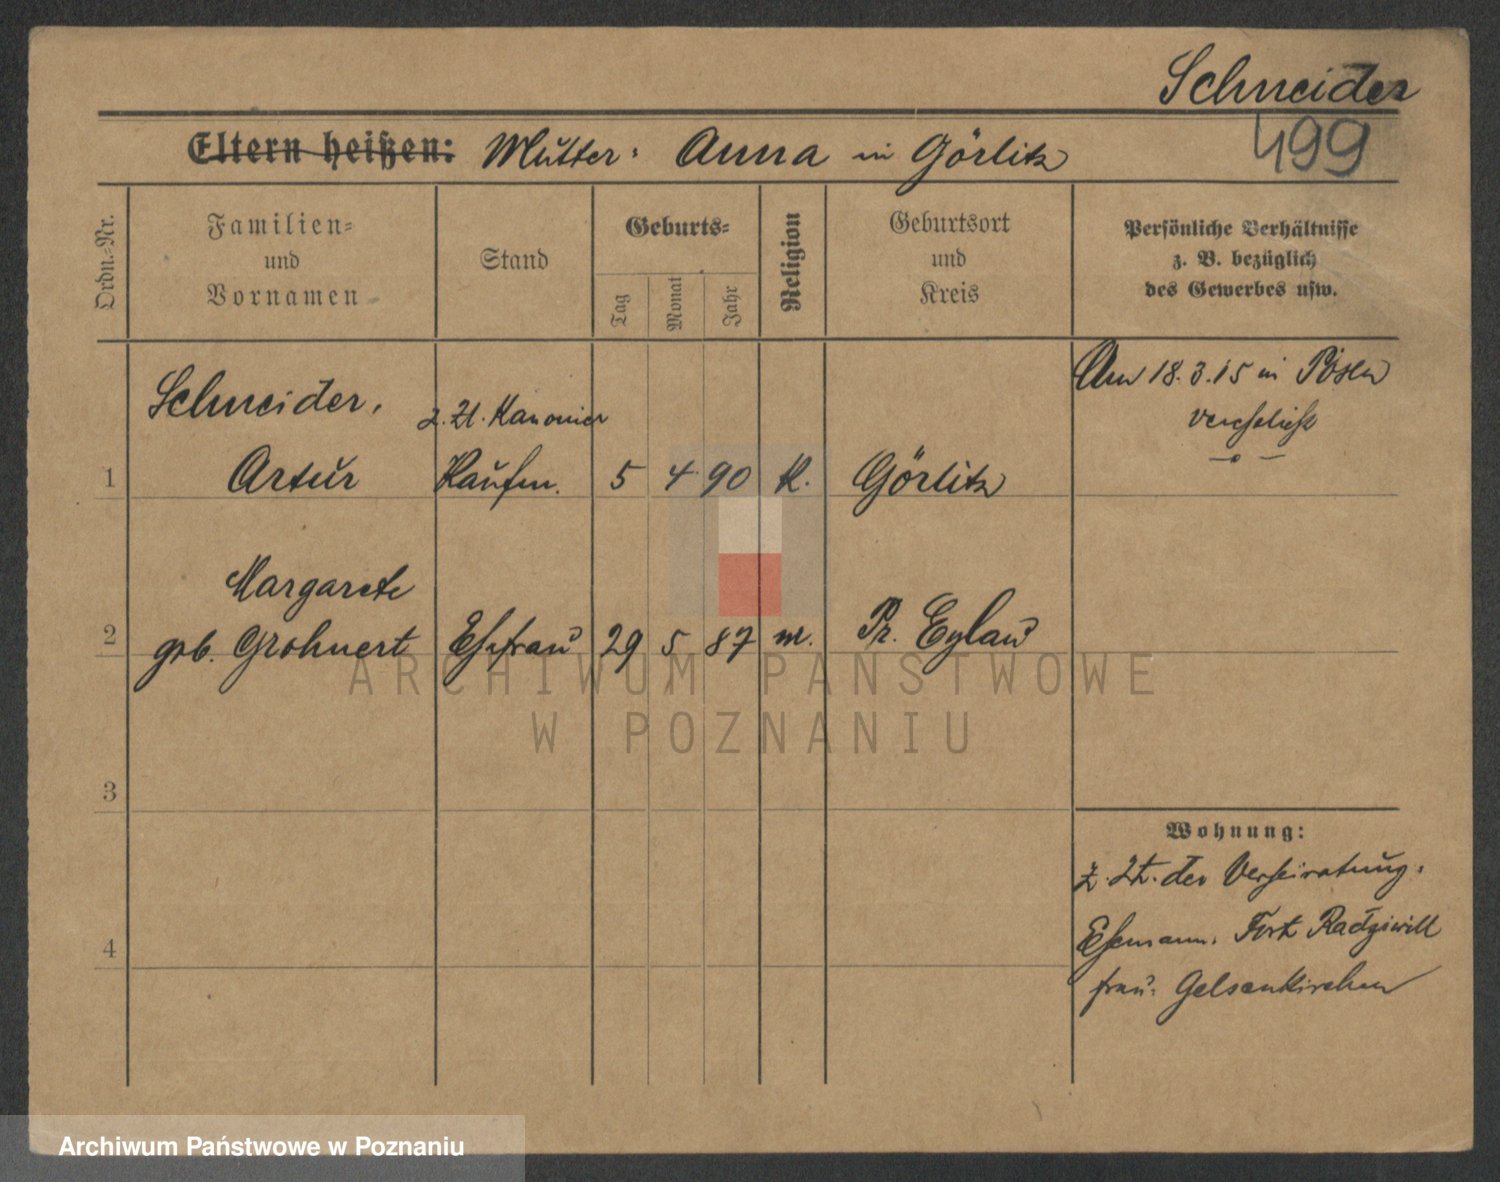 Schneider
499
Eltern heißen: Mutter: Anna in Görlitz
Ordn.-Nr.
Familien-
und
Vornamen
Stand
Geburts-
Tag
Monat
Jahr
Religion
Geburtsort
und
Kreis
Persönliche Verhältnisse
z. B. bezüglich
des Gewerbes usw.
1
Schneider,
Artur
z. Zt. Kanonier
Kaufm.
5 4 90 K.
Görlitz
Am 18.3.15 in Posen
verehelicht
2
Margarete
geb. Grohnert
Ehefrau
29 5 87 m.
Pr. Eylau
3
4
Wohnung:
z. Zt. der Verheiratung:
Ehemann: Fort Radziwill
frau: Gelsenkirchen
ARCHIWUM PAŃSTWOWE
W POZNANIU
Archiwum Państwowe w Poznaniu